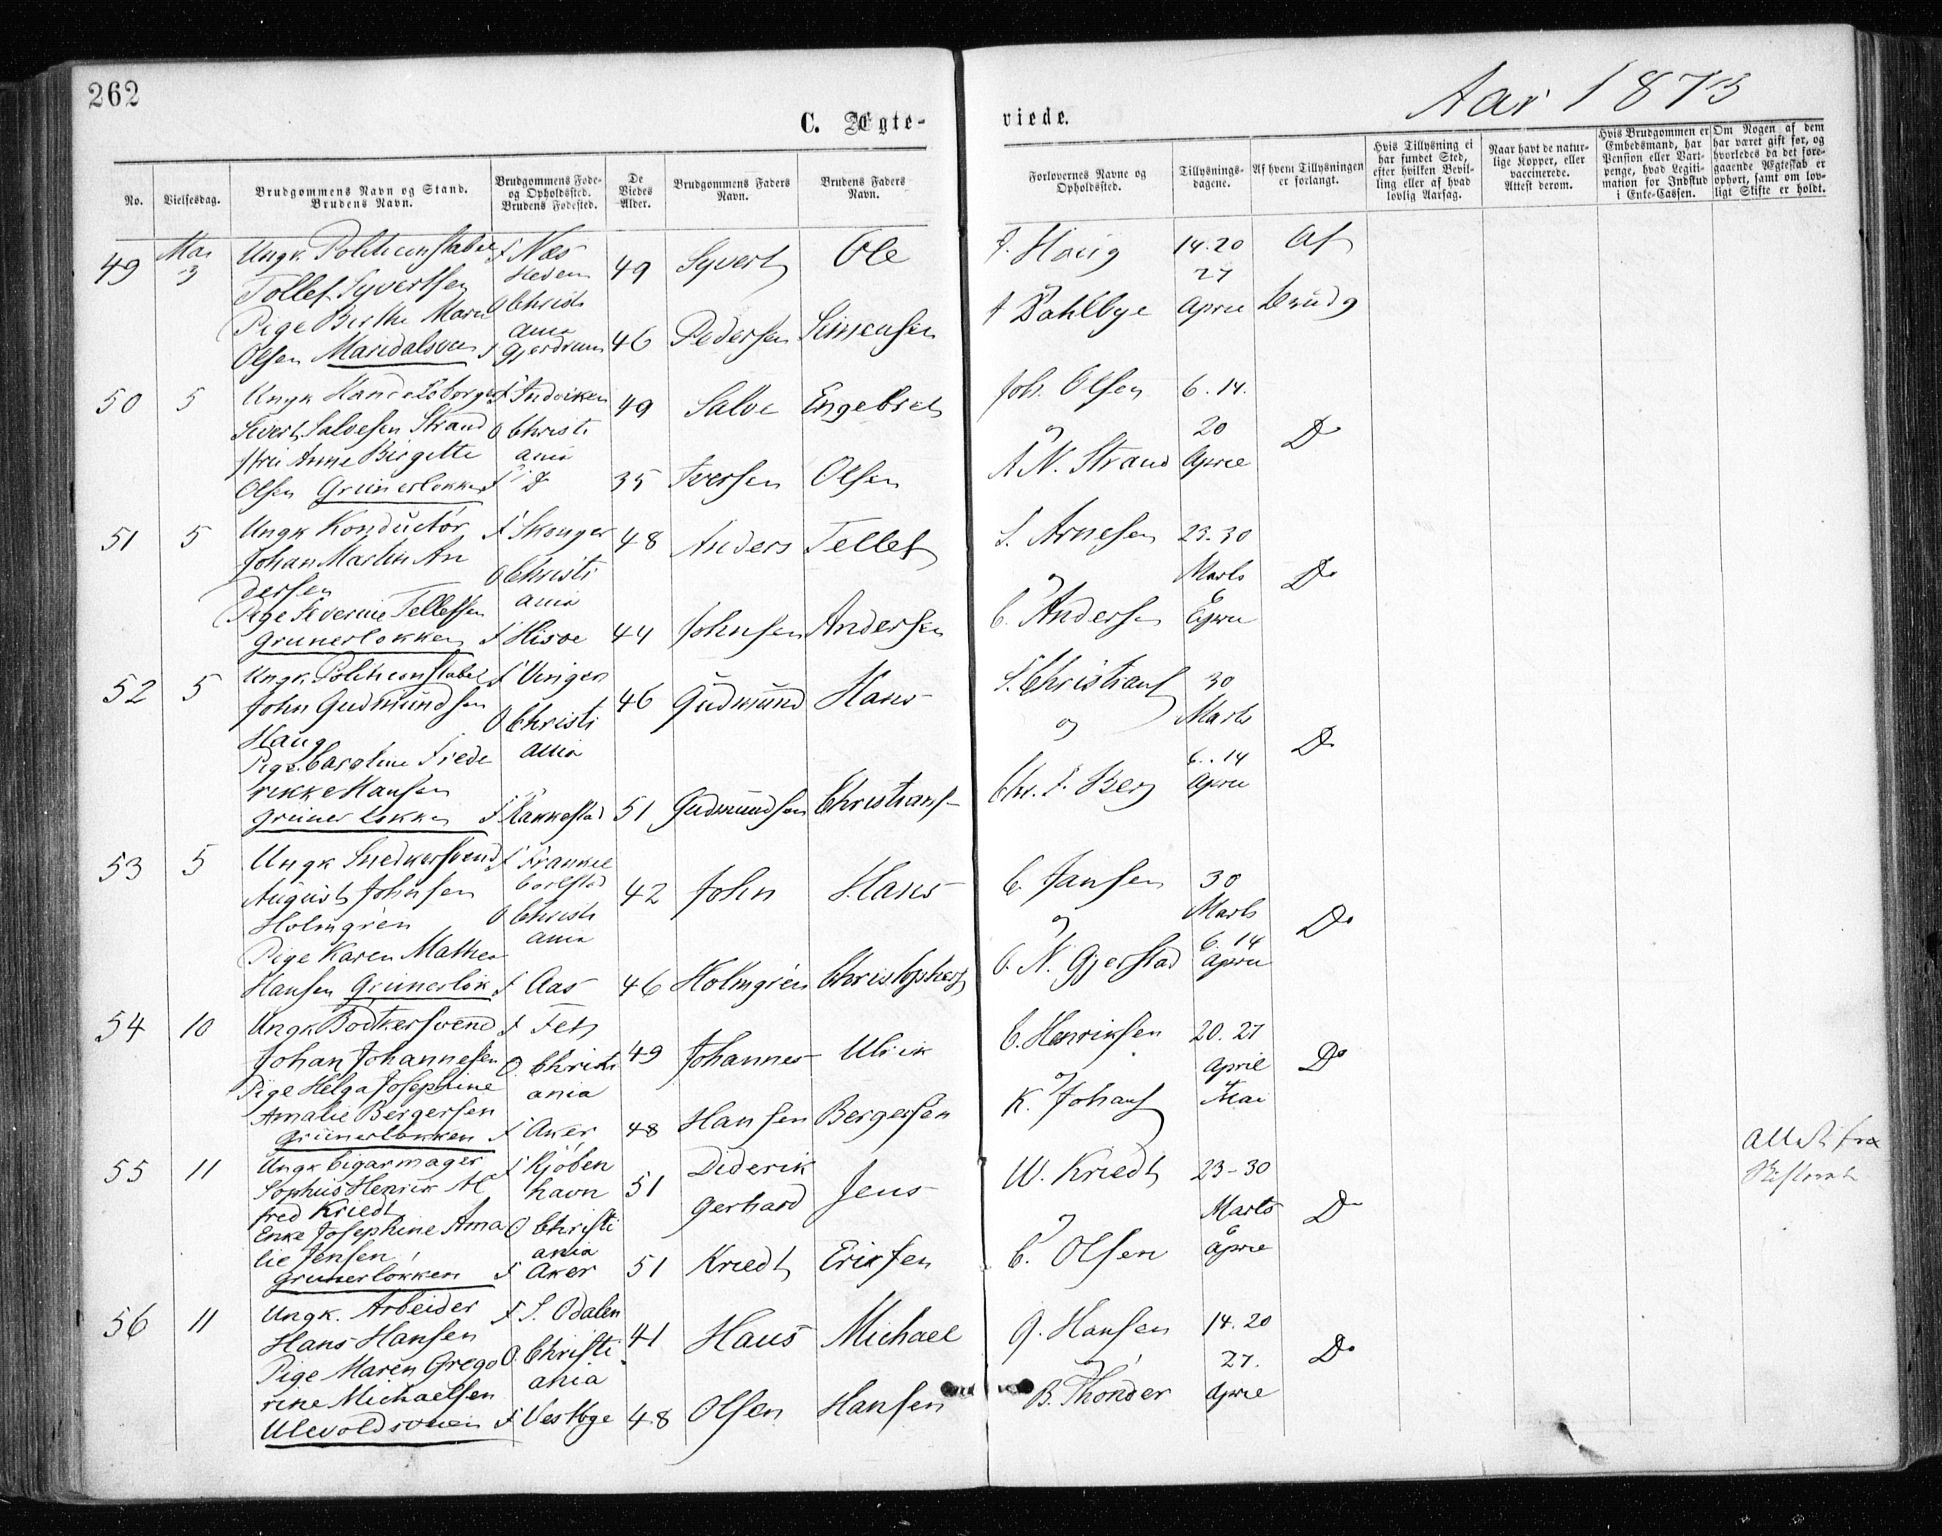 262
C. Ægte-
viede.
Aar 1873
No.
Vielsesdag.
Brudgommens Navn og Stand.
Brudens Navn.
Brudgommens Føde-
og Opholdssted.
Brudens Fødested.
De
Viedes
Alder.
Brudgommens Faders
Navn.
Brudens Faders
Navn.
Forlovernes Navne og
Opholdssted.
Tillysnings-
dagene.
Af hvem Tillysningen
er forlangt.
Hvis Tillysning ei
har fundet Sted,
efter hvilken Bevil-
ling eller af hvad
lovlig Aarsag.
Naar havt de natur-
lige Kopper, eller
vaccinerede.
Attest derom.
Hvis Brudgommen er
Embedsmand, har
Pension eller Vart-
penge, hvad Legiti-
mation for Indskud
i Enke-Cassen.
Om Nogen af dem
har været gift før, og
hvorledes da det fore-
gaaende Ægteskab er
ophørt, samt om lov-
ligt Skifte er holdt.
49 Mai 3
Ungk Politiconstabel
Tollef Syvertsen
Pige Berthe Marie
Olsen Maridalsvei
f Næs
Hedem
O Christi
ania
f Gjerdrum
49
46
Syvert
Pedersen
Ole
Simensen
F. Haug
og
A Dahlbye
14. 20
27
April
Af
Brudg
50 5
Ungk Handelsborger
Sivert Salvesen Strand
Anne Birgitte
Olsen Grünerløkken
f Indviken
O Christi
ania
f D
49
35
Salve
Iversen
Engebret
Olsen
Joh. Olsen
og
A N. Strand
6. 14.
20
April
Do
51 5
Ungk Konductør
Johan Martin An
dersen
Pige Severine Tellefsen
Grünerløkken
f Skonger
O Christi
ania
f Hisøe
48
44
Anders
Johnsen
Tellef
Andersen
S. Arnesen
og
C. Andersen
23-30
Marts
6
April
Do
52 5
Ungk. Politiconstabel
John Gudmundsen
Haug
Pige Caroline Frede
rikke Hansen
Grünerløkken
f Vinger
O Christi
ania
f Rakkestad
46
51
Gudmund
Gudmundsen
Hans
Christians
S. Christians
og
Chr. F. Berg
30
Marts
6. 14
April
Do
53 5
Ungk Snedkersvend
August Johnsen
Holmgrén
Pige Karen Mathea
Hansen Grünerløk
f
Carlstad
O Christi
ania
f Aas
42
46
John
Holmgrén
Hans
Christophers
C. Jansen
og
O. N. Gjerstad
30
Marts
6. 14
April
Do
54 10
Ungk Bødkersvend
Johan Johannesen
Pige Helga Josephine
Amalie Bergersen
Grünerløkken
f Fet
O. Christi
ania
f Aker
49
48
Johannes
Hansen
Ulrik
Bergersen
C. Henriksen
og
K. Johans
20. 27
April
4
Mai
Do
55 11
Ungk Cigarmager
Sophus Henrik Al
fred Kriedt
Enke Josephine Ama
lie Jensen
Grünerløkken
f Kjøben
havn
O Christi
ania
f Aker
51
51
Diderik
Gerhard
Kriedt
Jens
Eriksen
W. Kriedt
og
C. Olsen
23-30
Marts
6
April
Do
Attest fra
Skifteret
56 11
Ungk. Arbeider
Hans Hansen
Pige Maren Grego
rine Michaelsen
Ulevoldsveien
f S. Odalen
O. Christi
ania
f Vestbye
41
48
Hans
Olsen
Michael
Hansen
G. Hansen
og
B. Thonder
14. 20
27.
April
Do